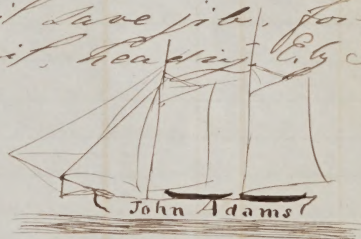 save jib, for
heading E by
John Adams